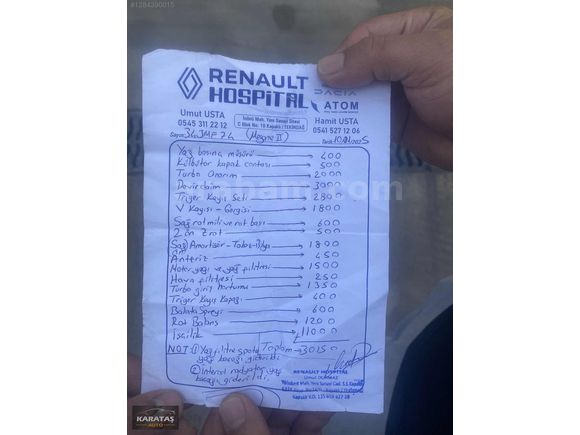 #1284390015
RENAULT
HOSPITAL
DACIA
ATOM
Umut USTA
0545 311 22 12
İsbirli Mah. Yeni Sanayi Sitesi
C Blok No: 19 Kapaklı / TEKİRDAĞ
Hamit USTA
0541 527 12 06
Sayın: 34 JMF 74 (Megne II)
Tarih:
Yağ basınç müşürü → 400
Külbütör kapak contası → 500
Turbo Onarım → 2000
Devirdaim → 3000
Triger Kayış Seti → 2800
V Kayışı - Gergisi → 1800
Sağ rot mili ve rot başı → 600
2 ön Z rot → 500
Sağ ön Amortisör - Takoz → 1800
Antifriz → 450
Motor yağı ve yağ filitresi → 1500
Hava filitresi → 250
Turbo giriş hortumu → 1350
Triger Kayış Kapağı → 400
Balata Spreyi → 600
Rot Balans → 1200
İşçilik → 11000
Toplam → 30150
NOT: ① Yağ filtre
yağ kaçağı giderildi
② İnterol radyatör yağ
kaçağı giderildi.
RENAULT HOSPITAL
KARATAŞ
AUTO